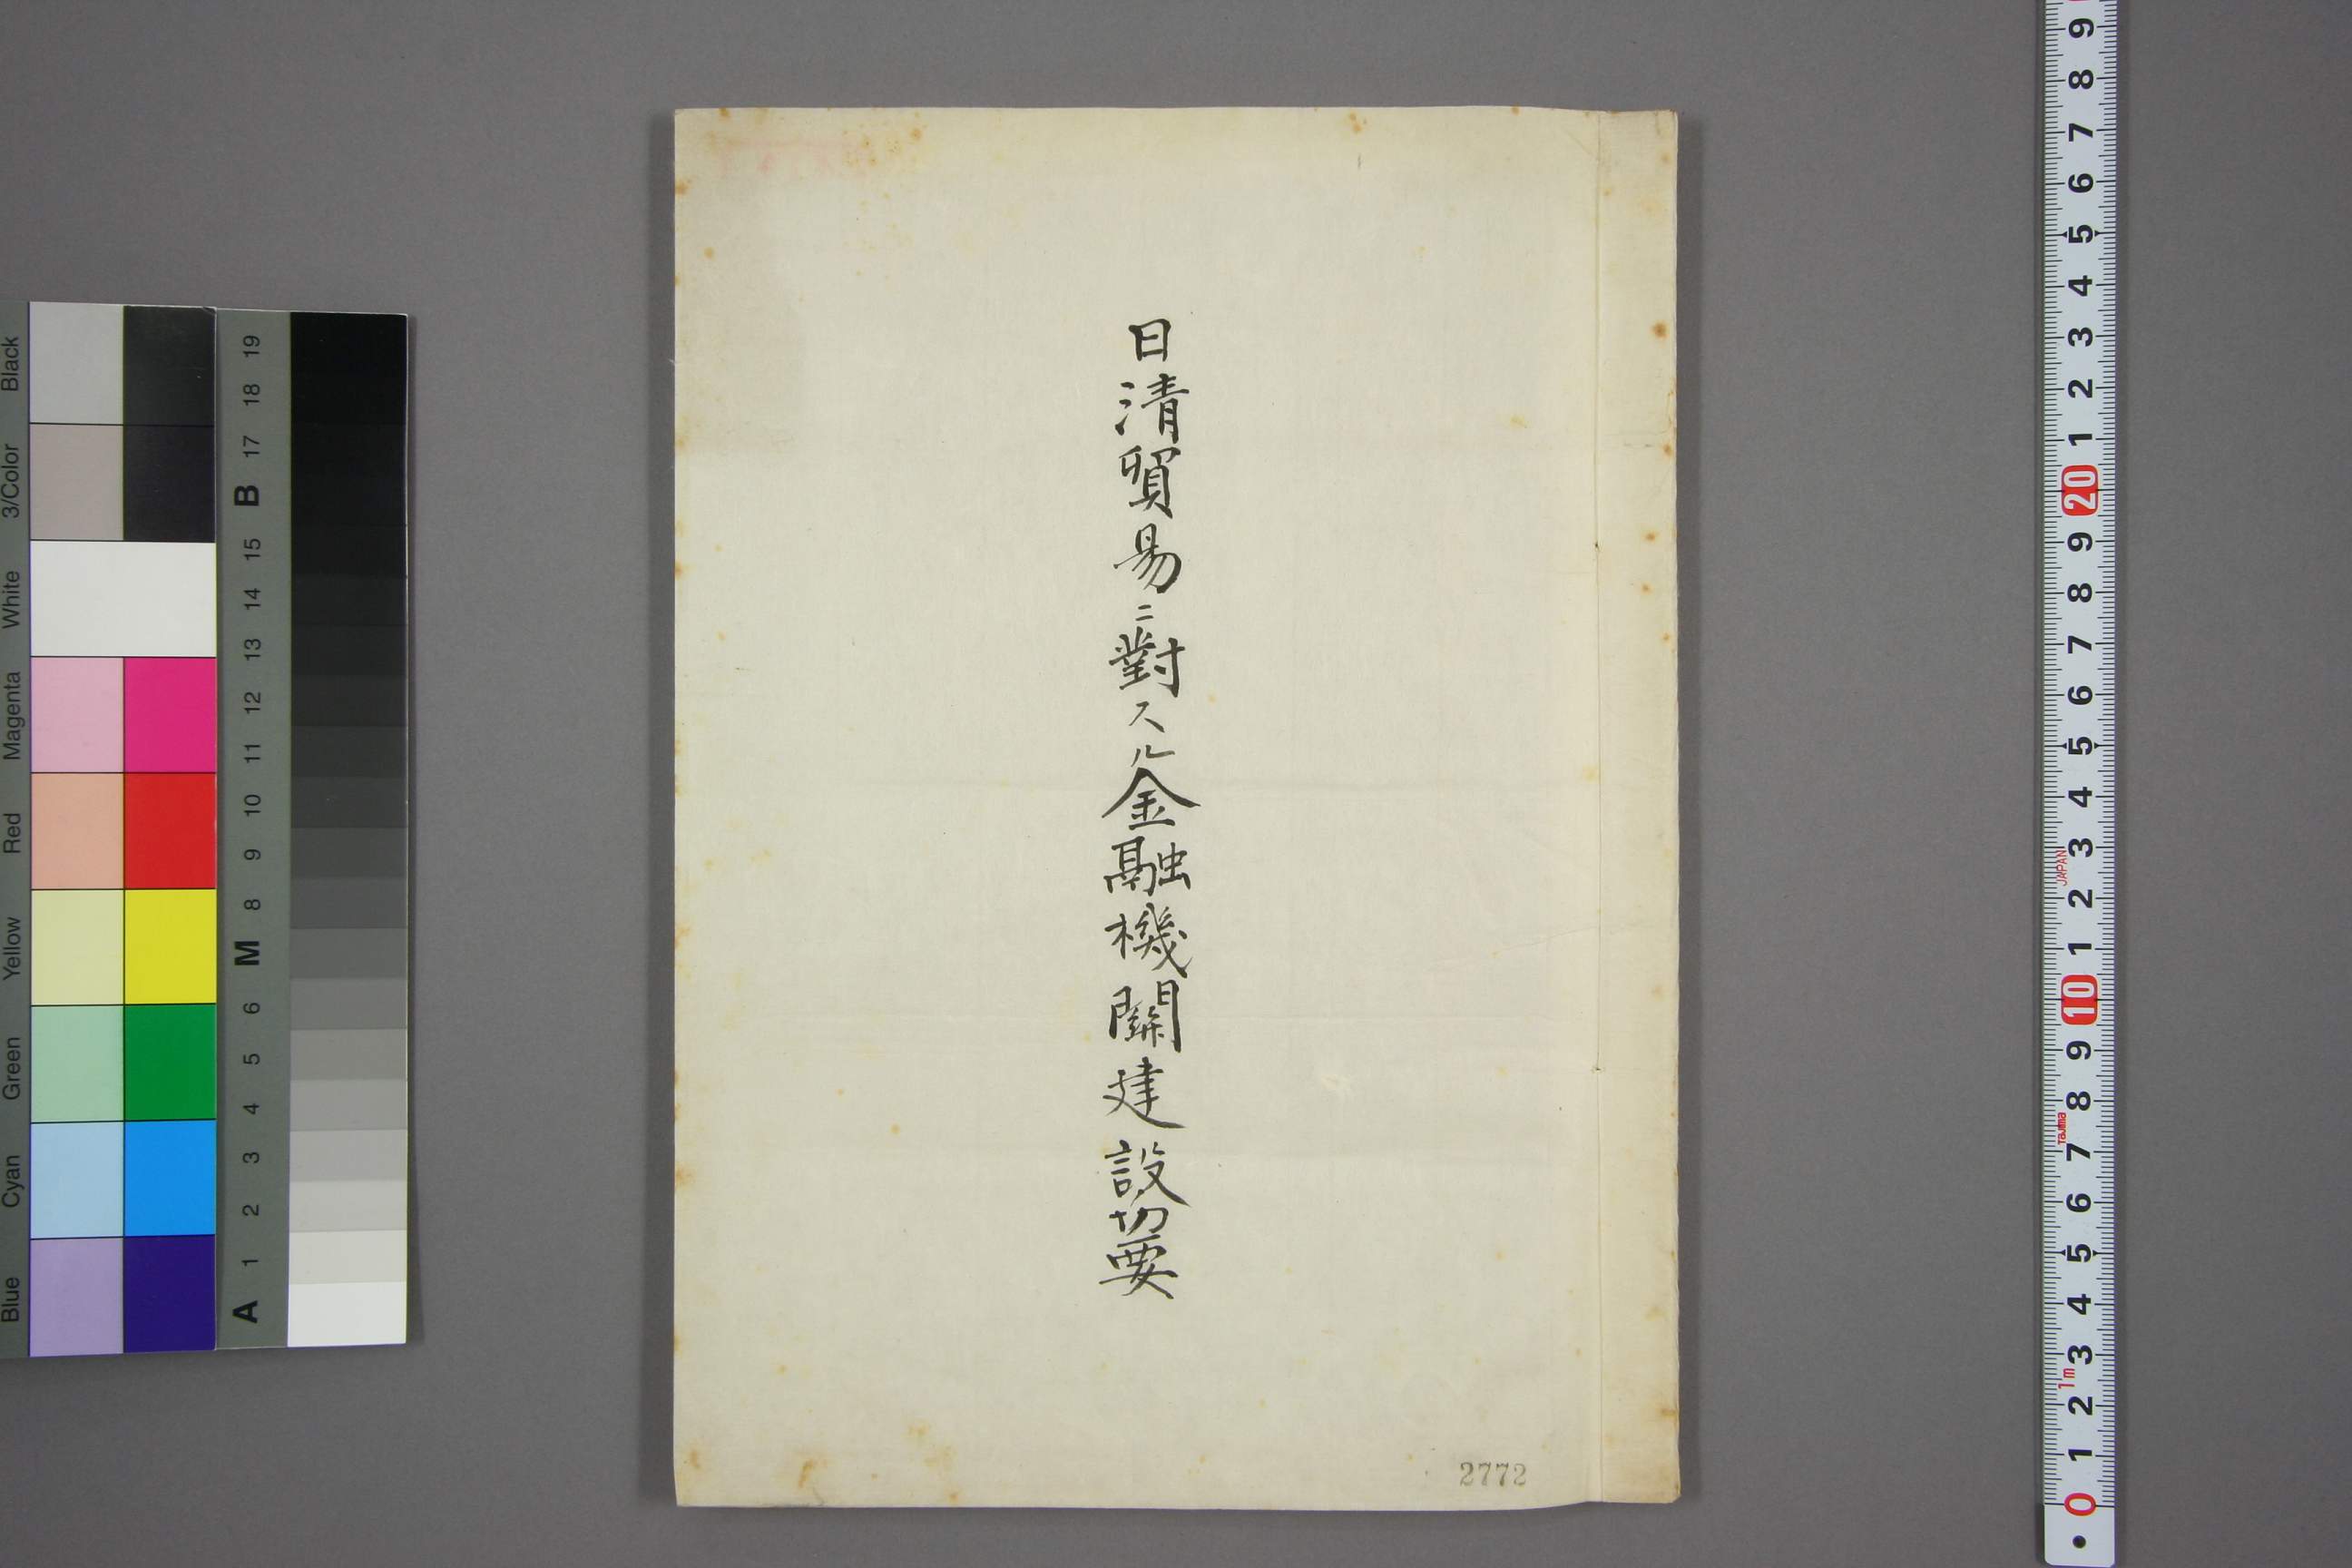 日清貿易ニ對スル金融機關建設切要
2772
Black
3/Color
White
Magenta
Red
Yellow
Green
Cyan
Blue
19
18
17
B
15
14
13
12
11
10
9
8
M
6
5
4
3
2
1
A
9
8
7
6
5
4
3
2
1
20
9
8
7
6
5
4
3
JAPAN
2
1
10
9
8
Tajima
7
6
5
4
3
1m
2
1
0